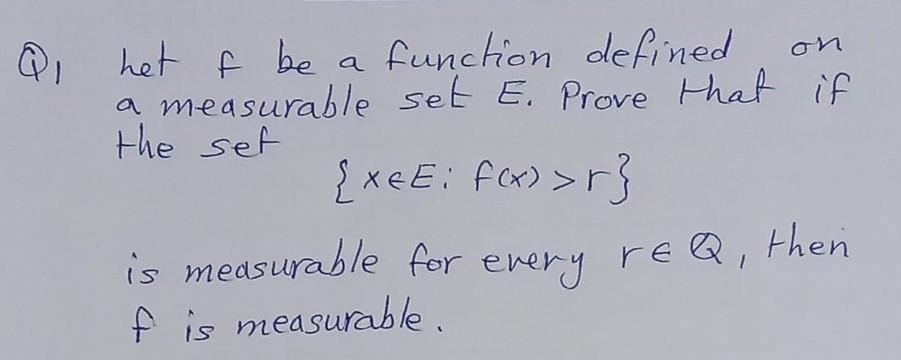 Q1 Let f be a function defined on
a measurable set E. Prove that if
the set
{x∈E: f(x) > r}
is measurable for every r∈Q, then
f is measurable.